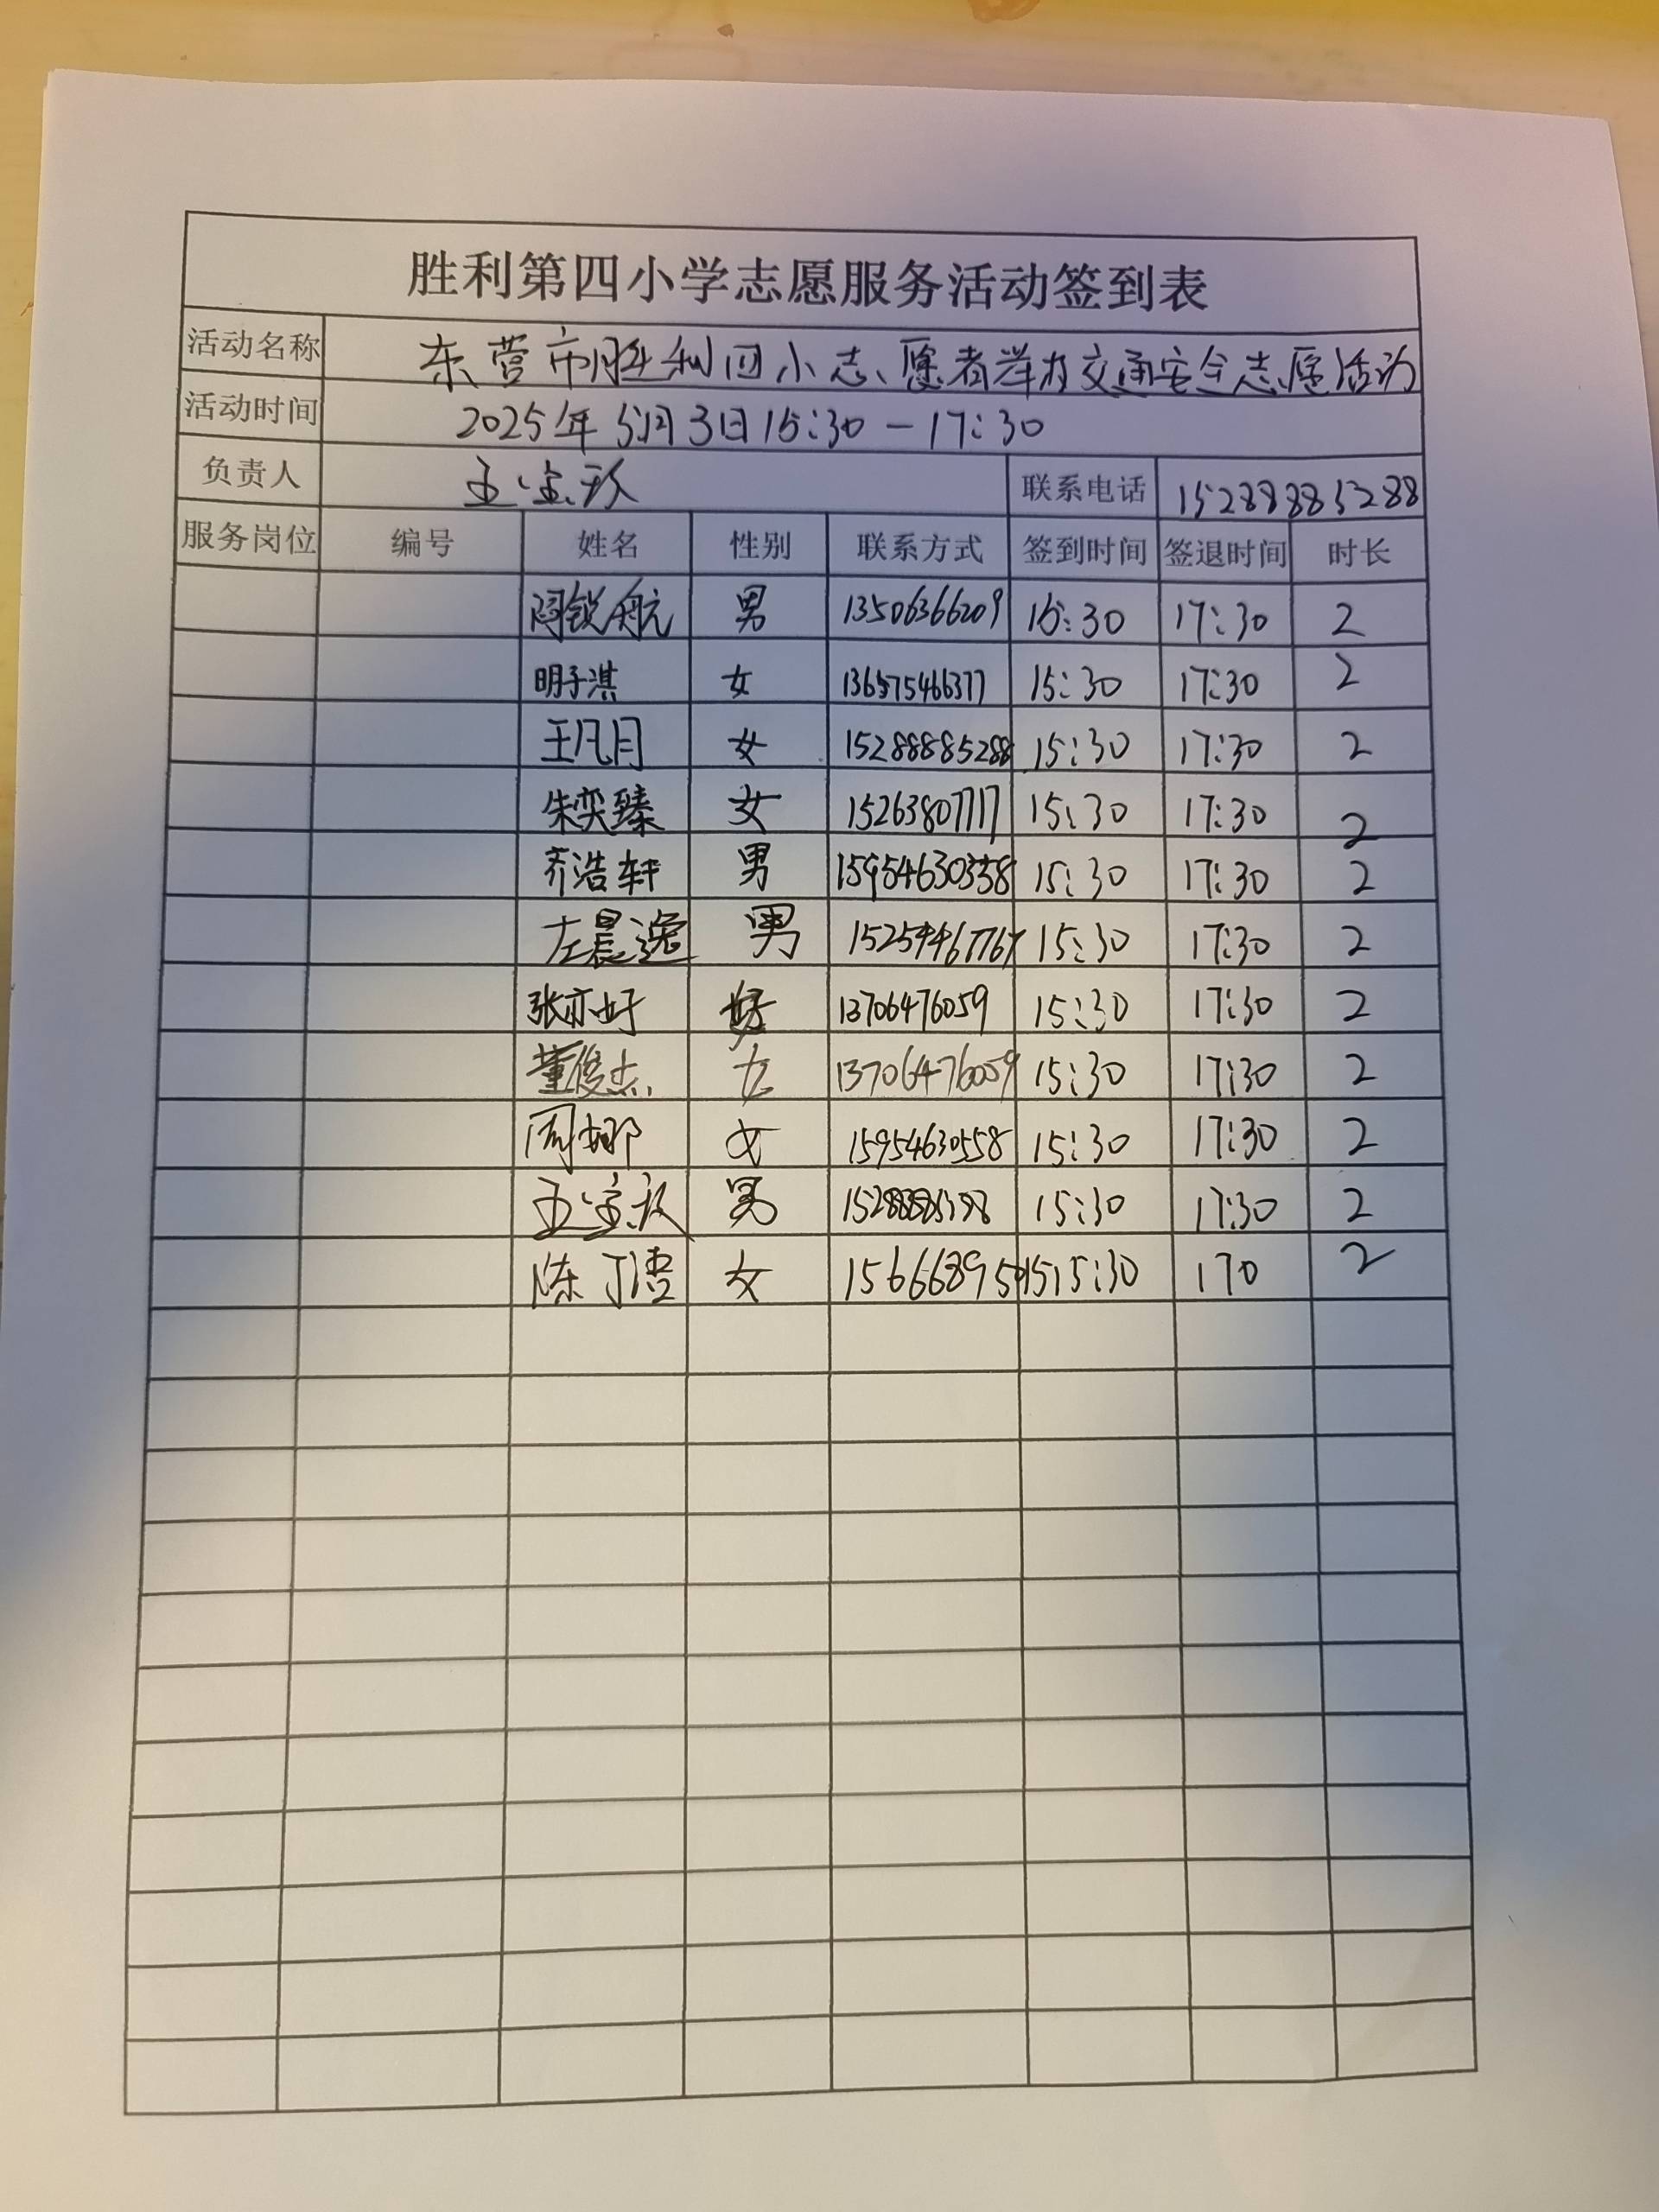 胜利第四小学志愿服务活动签到表
活动名称 东营市胜利四小志愿者举办交通安全志愿活动
活动时间 2025年5月3日15:30—17:30
负责人 联系电话 152888885288
服务岗位 编号 姓名 性别 联系方式 签到时间 签退时间 时长
闫锐航 男 13506366209 15:30 17:30 2
明子淇 女 15:30 17:30 2
王凡月 女 15288885288 15:30 17:30 2
朱奕臻 女 15263807717 15:30 17:30 2
齐浩轩 男 15:30 17:30 2
左晨逸 男 15:30 17:30 2
张亦好 13706476059 15:30 17:30 2
董俊杰 女 13706476059 15:30 17:30 2
周娜 女 15954630558 15:30 17:30 2
男 15:30 17:30 2
陈丁语 女 15:30 170 2